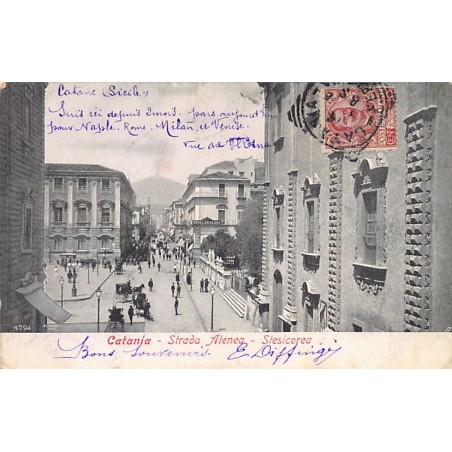 Catane (Sicile)
Suis ici depuis 2 mois. pars aujourd'hui
pour Naple. Rome. Milan, et Venise.
Vue de l'Etna
4794
Catania - Strada Atenea - Stesicorea
Bons Souvenirs. E. Diffingi